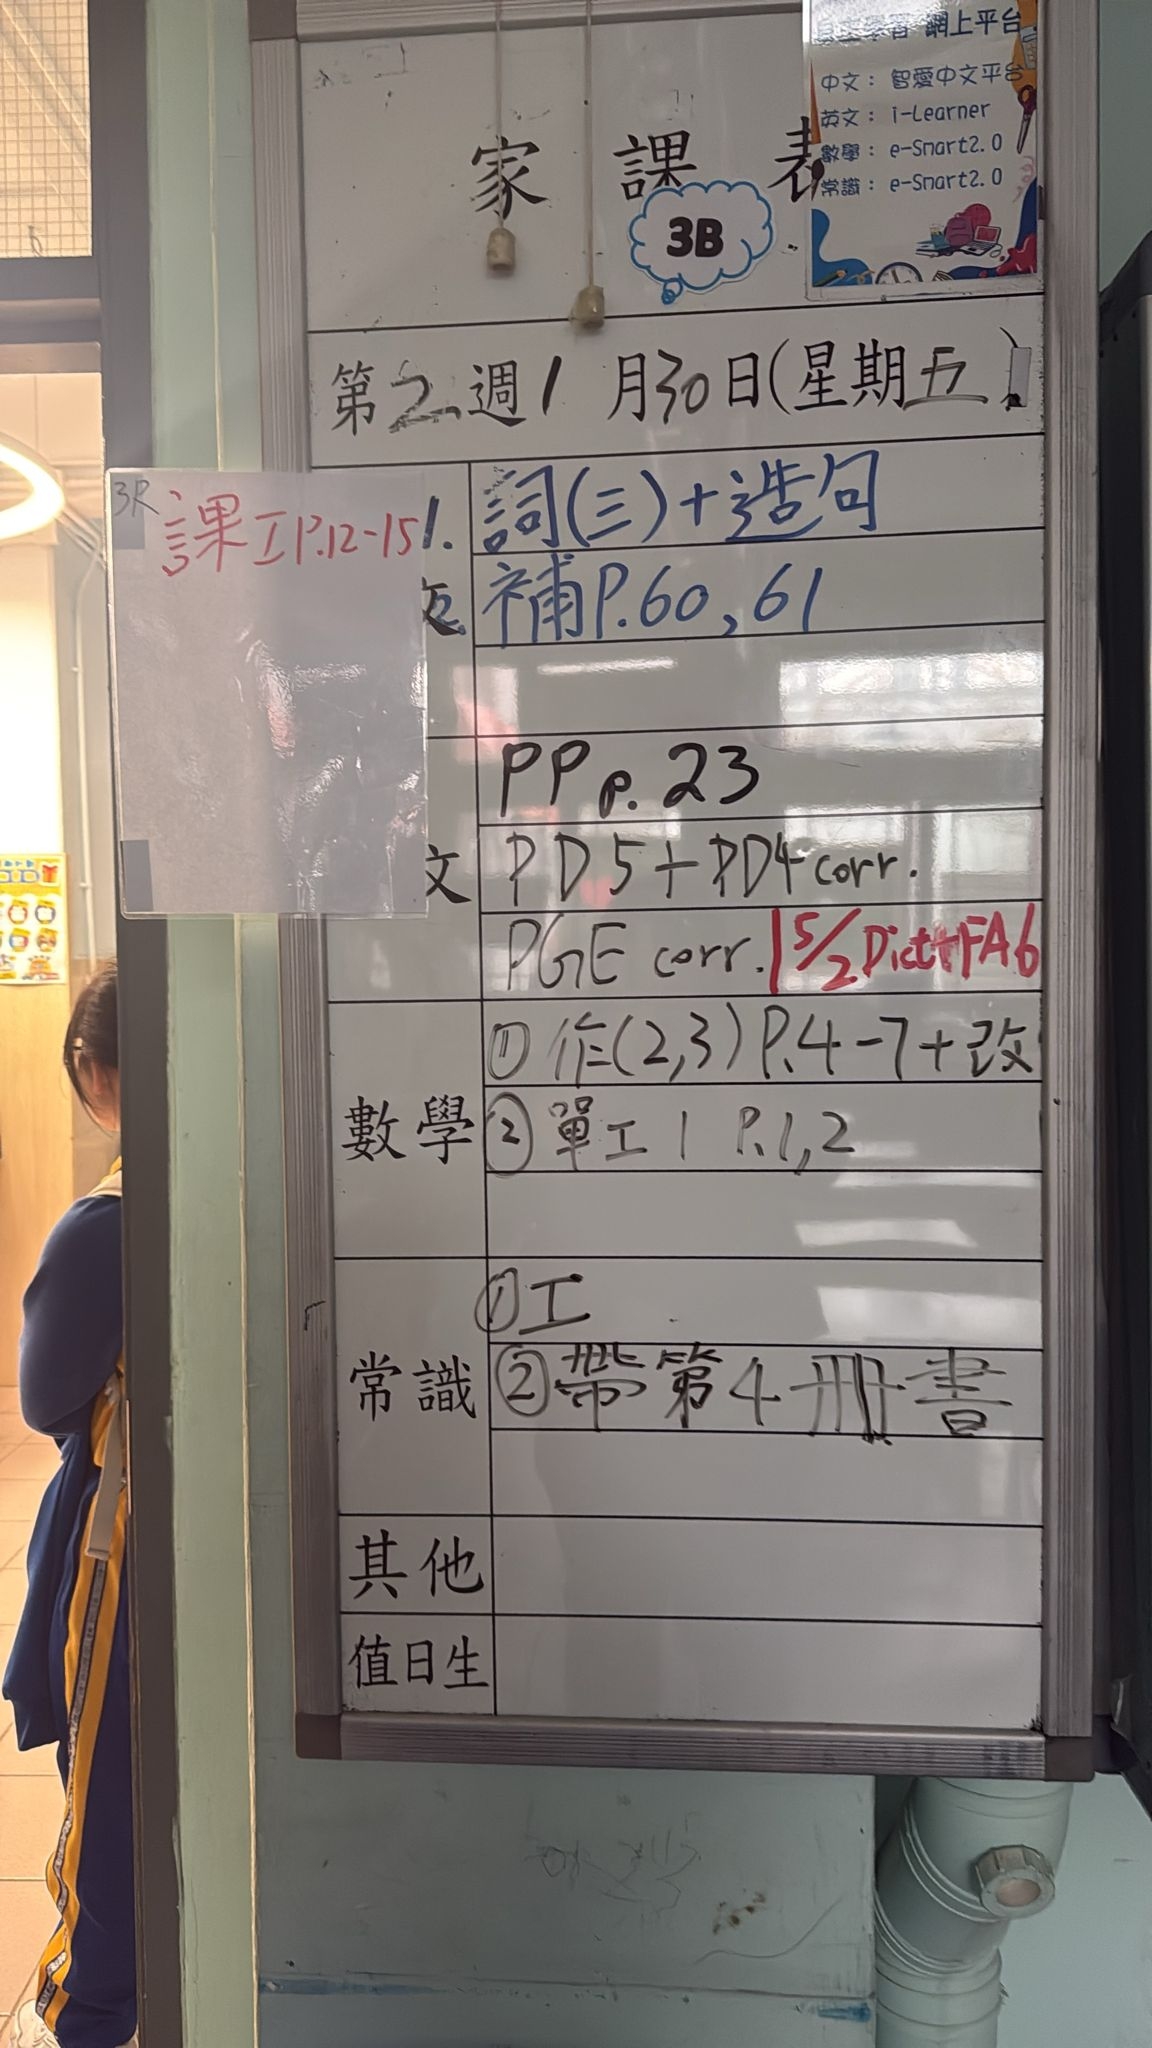 網上平台
中文：智愛中文平台
英文：i-Learner
數學：e-Smart2.0
常識：e-Smart2.0
家課表
3B
第2週1月30日(星期五)
3R
課工P.12-15
1. 詞(三)+造句
文 2. 補P.60,61
PP p.23
文 PD5+PD4 corr.
PGE corr. 15/2 Dict+FA6
數學
① 作(2,3)P.4-7+改
② 單工1 P.1,2
常識
①工
②帶第4冊書
其他
值日生